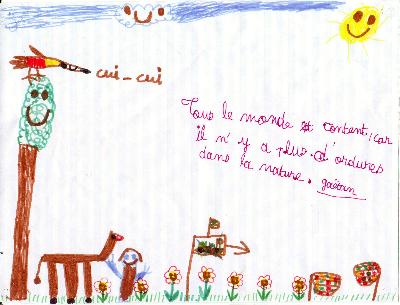 cui-cui
Tous le monde est content, car
il n'y a plus d'ordures
dans la nature.
gaëtan